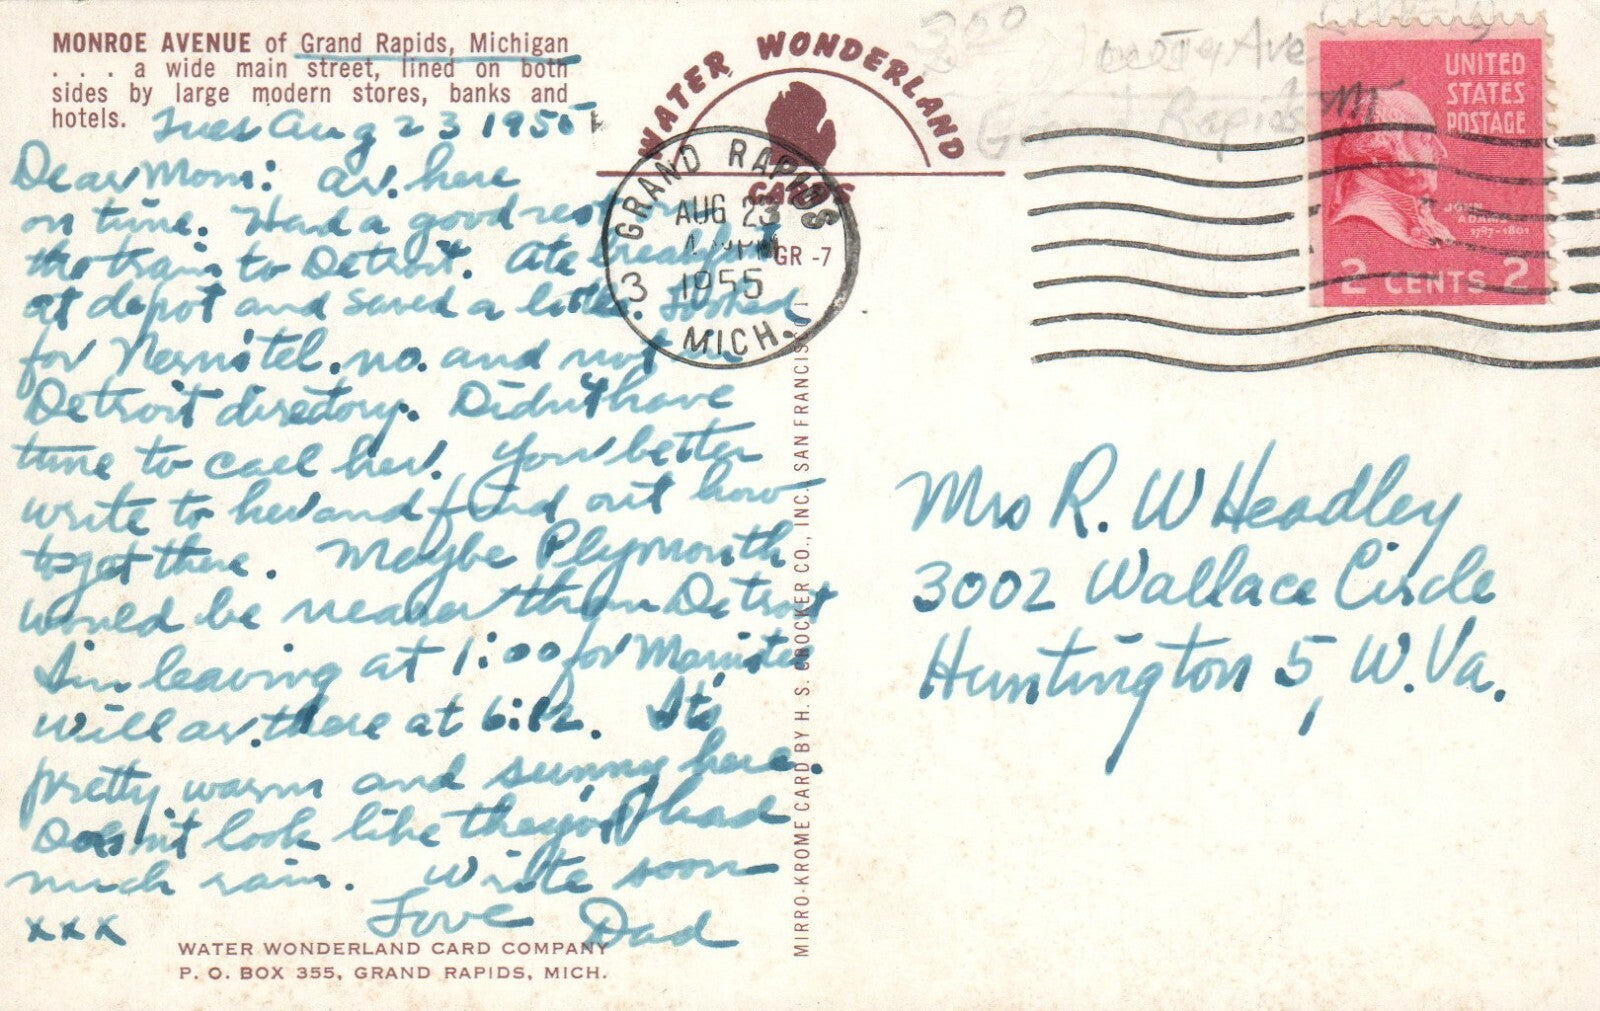 MONROE AVENUE of Grand Rapids, Michigan
. . . a wide main street, lined on both
sides by large modern stores, banks and
hotels.
Tues Aug 23 1955
Dear Mom: Ar. here
on time. Had a good rest on
the train to Detroit. Ate breakfast
at depot and saved a little. Looked
for tel. no. and not in
Detroit directory. Didn't have
time to call her. You better
write to her and find out how
to get there. Maybe Plymouth
would be nearer than Detroit
Im leaving at 1:00 for Manistee
will ar. there at 6:12. Its
pretty warm and sunny here.
Doesn't look like they've had
much rain. Write soon
xxx Love Dad
WATER WONDERLAND CARD COMPANY
P. O. BOX 355, GRAND RAPIDS, MICH.
WATER WONDERLAND
CARDS
GR -7
GRAND RAPIDS
AUG 23
PM
1955
3
MICH.
MIRRO-KROME CARD BY H. S. CROCKER CO., INC. SAN FRANCISCO 1
350
Ave
Grand Rapids MI
UNITED
STATES
POSTAGE
JOHN
ADAMS
1797-1801
2 CENTS 2
Mrs R. W Headley
3002 Wallace Circle
Huntington 5, W. Va.